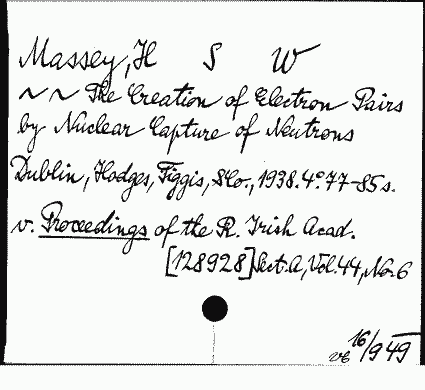 Massey, H S W
~ ~ The Creation of Electron Pairs
by Nuclear Capture of Neutrons
Dublin, Hodges, Figgis, & Co., 1938. 4°. 77-85 s.
v. Proceedings of the R. Irish Acad.
[128928] Sect. A, Vol. 44, No. 6
16/9 49